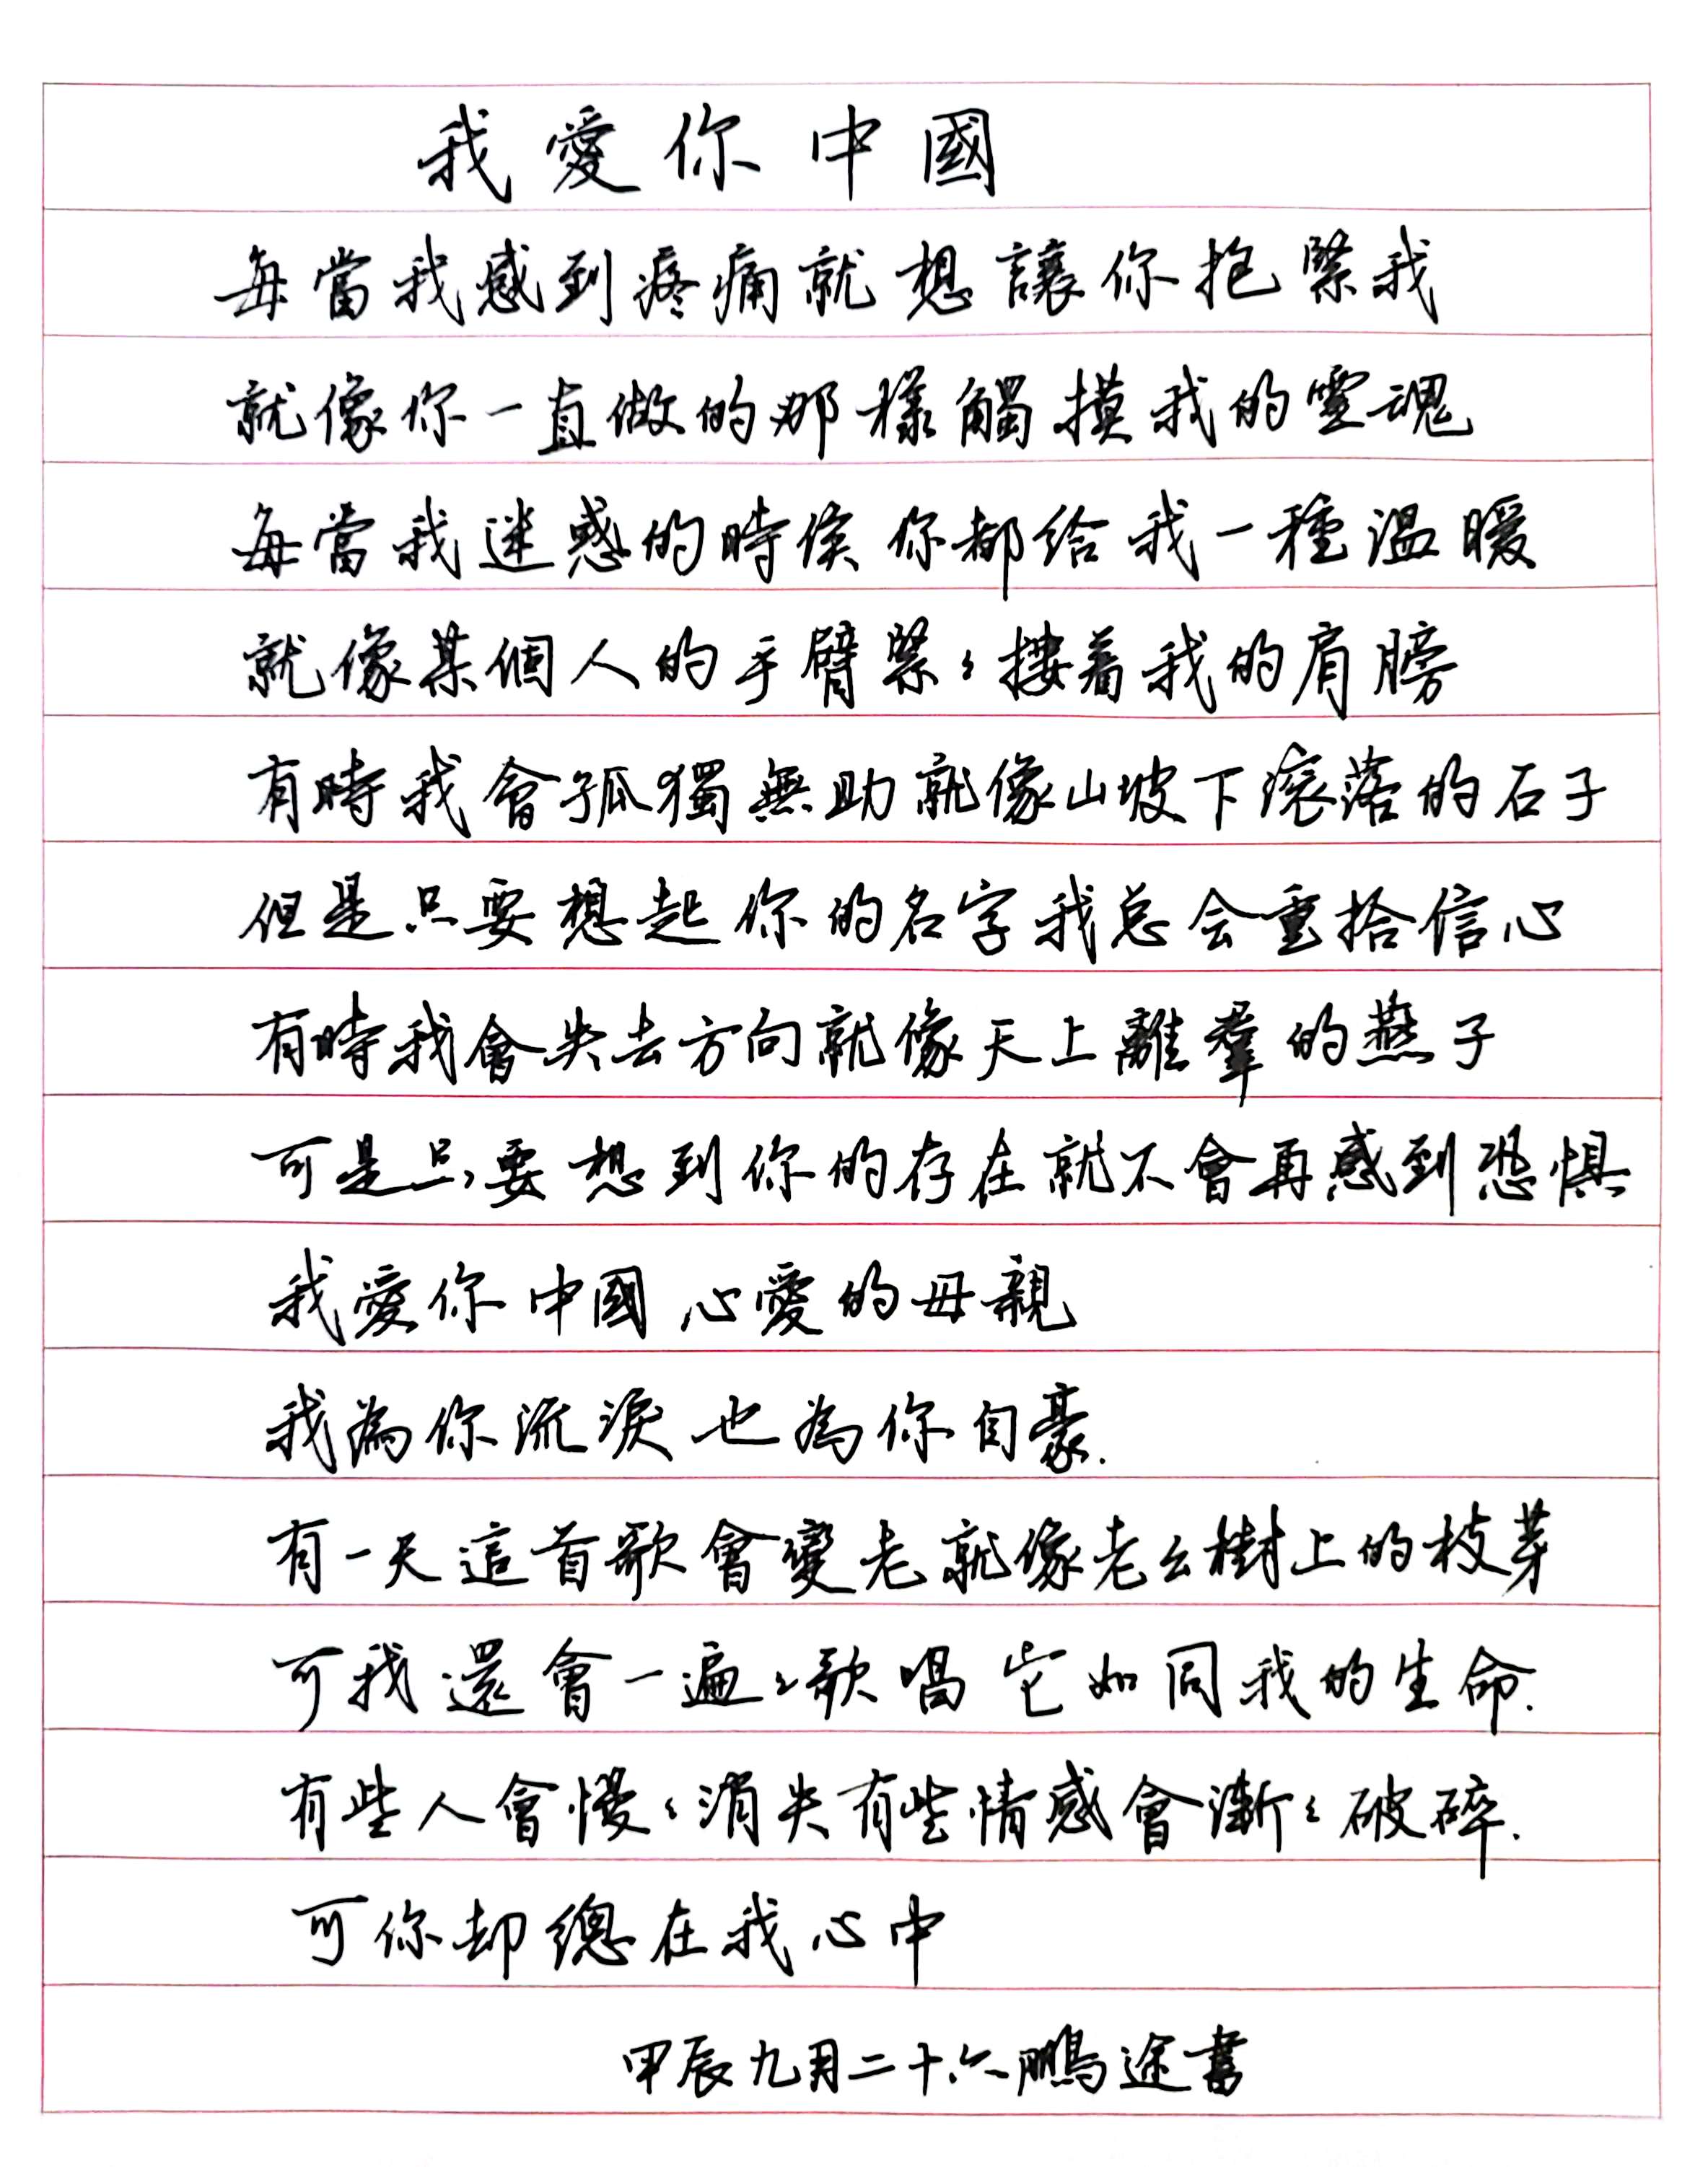 我愛你中國
每當我感到疼痛就想讓你抱緊我
就像你一直做的那樣觸摸我的靈魂
每當我迷惑的時候你都給我一種溫暖
就像某個人的手臂緊々摟着我的肩膀
有時我會孤獨無助就像山坡下滾落的石子
但是只要想起你的名字我总会重拾信心
有時我會失去方向就像天上離羣的燕子
可是只要想到你的存在就不會再感到恐懼
我愛你中國 心愛的母親
我為你流淚也為你自豪.
有一天這首歌會變老就像老公樹上的枝芽
可我還會一遍々歌唱它如同我的生命.
有些人會慢々消失有些情感會漸々破碎.
可你却總在我心中
甲辰九月二十六鵬途書